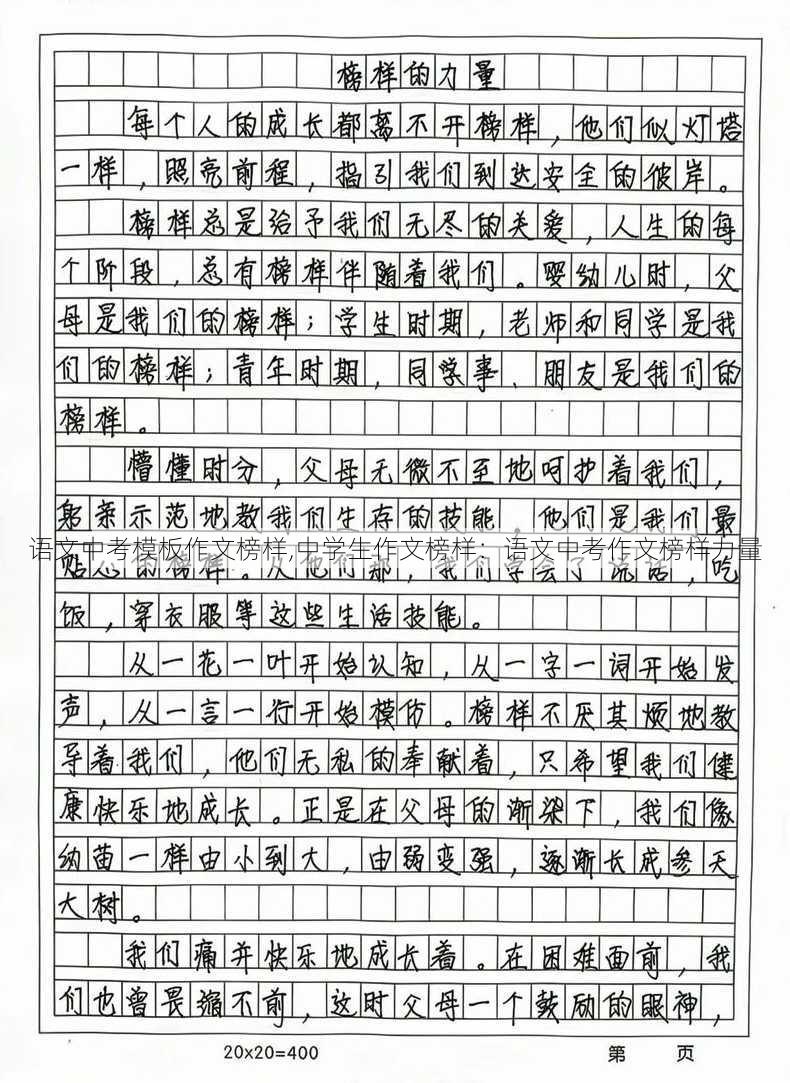 榜样的力量
每个人的成长都离不开榜样，他们似灯塔
一样，照亮前程，指引我们到达安全的彼岸。
榜样总是给予我们无尽的关爱，人生的每
个阶段，总有榜样伴随着我们。婴幼儿时，父
母是我们的榜样；学生时期，老师和同学是我
们的榜样；青年时期，同学事、朋友是我们的
榜样。
懵懂时分，父母无微不至地呵护着我们，
躬亲示范地教我们生存的技能 他们是我们最
语文中考模板作文榜样,中学生作文榜样：语文中考作文榜样力量
贴心的榜样。从他们那，我们学会了说话，吃
饭，穿衣服等这些生活技能。
从一花一叶开始认知，从一字一词开始发
声，从一言一行开始模仿。榜样不厌其烦地教
导着我们，他们无私的奉献着，只希望我们健
康快乐地成长。正是在父母的渐染下，我们像
幼苗一样由小到大，由弱变强，逐渐长成参天
大树。
我们痛并快乐地成长着。在困难面前，我
们也曾畏缩不前，这时父母一个鼓励的眼神，
20x20=400
第 页